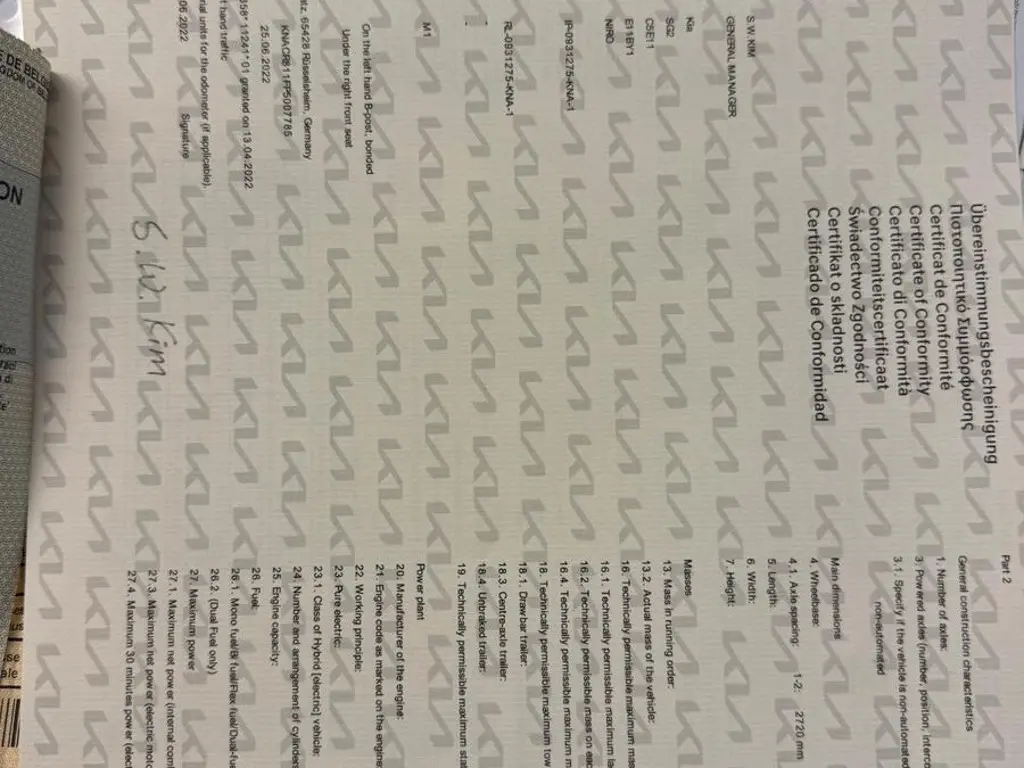 S.W. KIM
GENERAL MANAGER
Kia
SG2
C5E11
E11BY1
NIRO
IP-0931275-KNA-1
RL-0931275-KNA-1
M1
On the left hand B-post, bonded
Under the right front seat
65428 Rüsselsheim, Germany
25.06.2022
11241*01 granted on 13.04.2022
hand traffic
units for the odometer (if applicable).
06.2022 Signature
S.W. Kim
Übereinstimmungsbescheinigung
Πιστοποιητικό Συμμόρφωσης
Certificat de Conformité
Certificate of Conformity
Certificato di Conformità
Conformiteitscertificaat
Świadectwo Zgodności
Certifikat o skladnosti
Certificado de Conformidad
Part 2
General construction characteristics
1. Number of axles:
3. Powered axles (number, position, interco
3.1. Specify if the vehicle is non-automated
non-automated
Main dimensions
4. Wheelbase:
4.1. Axle spacing: 1-2: 2720 mm
5. Length:
6. Width:
7. Height:
Masses
13. Mass in running order:
13.2. Actual mass of the vehicle:
16. Technically permissible maximum
16.1. Technically permissible maximum
16.2. Technically permissible mass on
16.4. Technically permissible maximum
18. Technically permissible maximum tow
18.1. Drawbar trailer:
18.3. Centre-axle trailer:
18.4. Unbraked trailer:
19. Technically permissible maximum
Power plant
20. Manufacturer of the engine:
21. Engine code as marked on the engine
22. Working principle:
23. Pure electric:
23.1. Class of Hybrid [electric] vehicle:
24. Number and arrangement of
25. Engine capacity:
26. Fuel:
26.1. Mono fuel/Bi fuel/Flex fuel/Dual-fu
26.2. (Dual Fuel only)
27. Maximum power
27.1. Maximum net power (internal
27.3. Maximum net power (electric
27.4. Maximum 30 minutes power
DE
ON